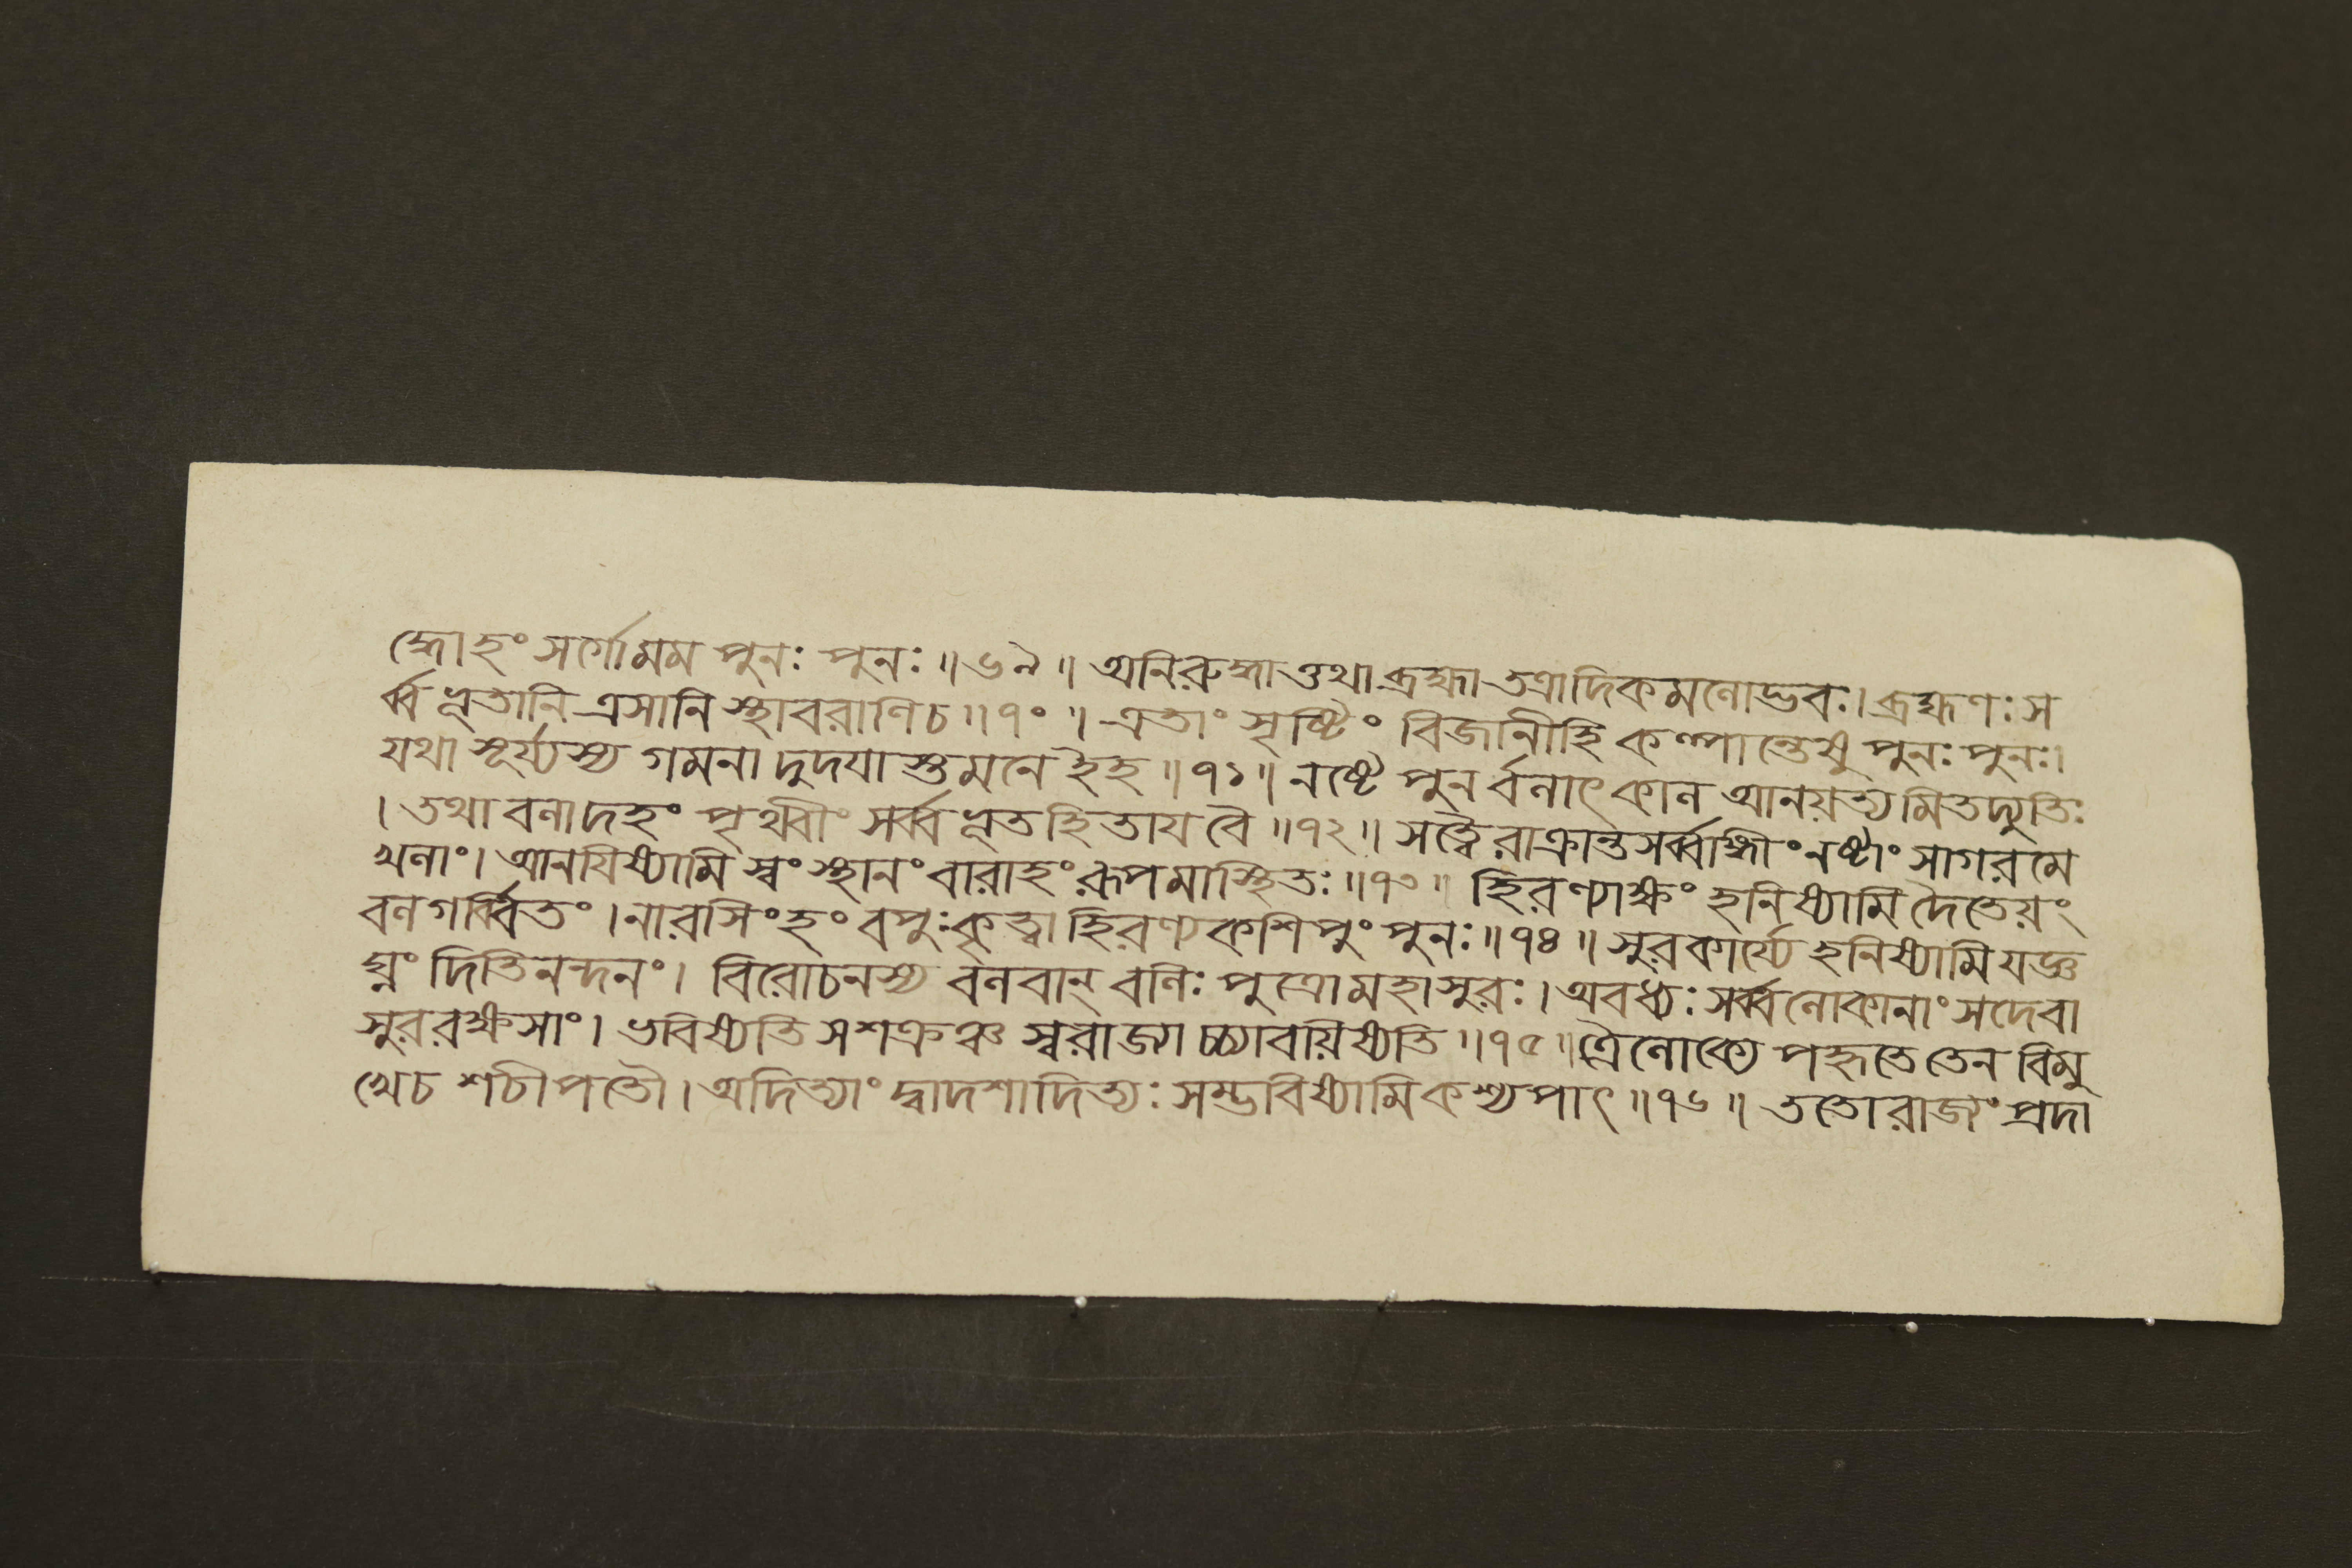 দ্ধোহং সর্গো মম পুনঃ পুনঃ ॥ ৬৯ ॥ অনিরুদ্ধাত্তথা ব্রহ্মা তত্রাদিকমলোদ্ভবঃ। ব্রহ্মণঃ স
র্ব্বভূতানি ত্রসানি স্থাবরাণি চ ॥ ৭০ ॥ এতাং সৃষ্টিং বিজানীহি কল্পান্তেষু পুনঃ পুনঃ।
যথা সূর্য্যস্য গমনাদুদয়াস্তমনে ইহ ॥ ৭১ ॥ নষ্টৌ পুনর্বলাৎ কাল আনয়ত্যমিতদ্যুতিঃ
। তথা বলাদহং পৃথ্বীং সর্ব্বভূতহিতায বৈ ॥ ৭২ ॥ সত্ত্বৈরাক্রান্তসর্ব্বাঙ্গীং নষ্টাং সাগরমে
খলাং। আনযিষ্যামি স্বং স্থানং বারাহং রূপমাস্থিতঃ ॥ ৭৩ ॥ হিরণ্যাক্ষং হনিষ্যামি দৈতেয়ং
বলগর্ব্বিতং। নারসিংহং বপুঃ কৃত্বা হিরণ্যকশিপুং পুনঃ ॥ ৭৪ ॥ সুরকার্য্যে হনিষ্যামি যজ্ঞ
ঘ্নং দিতিনন্দনং। বিরোচনস্য বলবান্ বলিঃ পুত্রো মহাসুরঃ। অবধ্যঃ সর্ব্বলোকানাং সদেবা
সুররক্ষসাং। ভবিষ্যতি স শক্রঞ্চ স্বরাজ্যাচ্চ্যাবয়িষ্যতি ॥ ৭৫ ॥ ত্রৈলোক্যেপহৃতে তেন বিমু
খে চ শচীপতৌ। অদিত্যাং দ্বাদশাদিত্যঃ সম্ভবিষ্যামি কশ্যপাৎ ॥ ৭৬ ॥ ততো রাজ্যং প্রদা